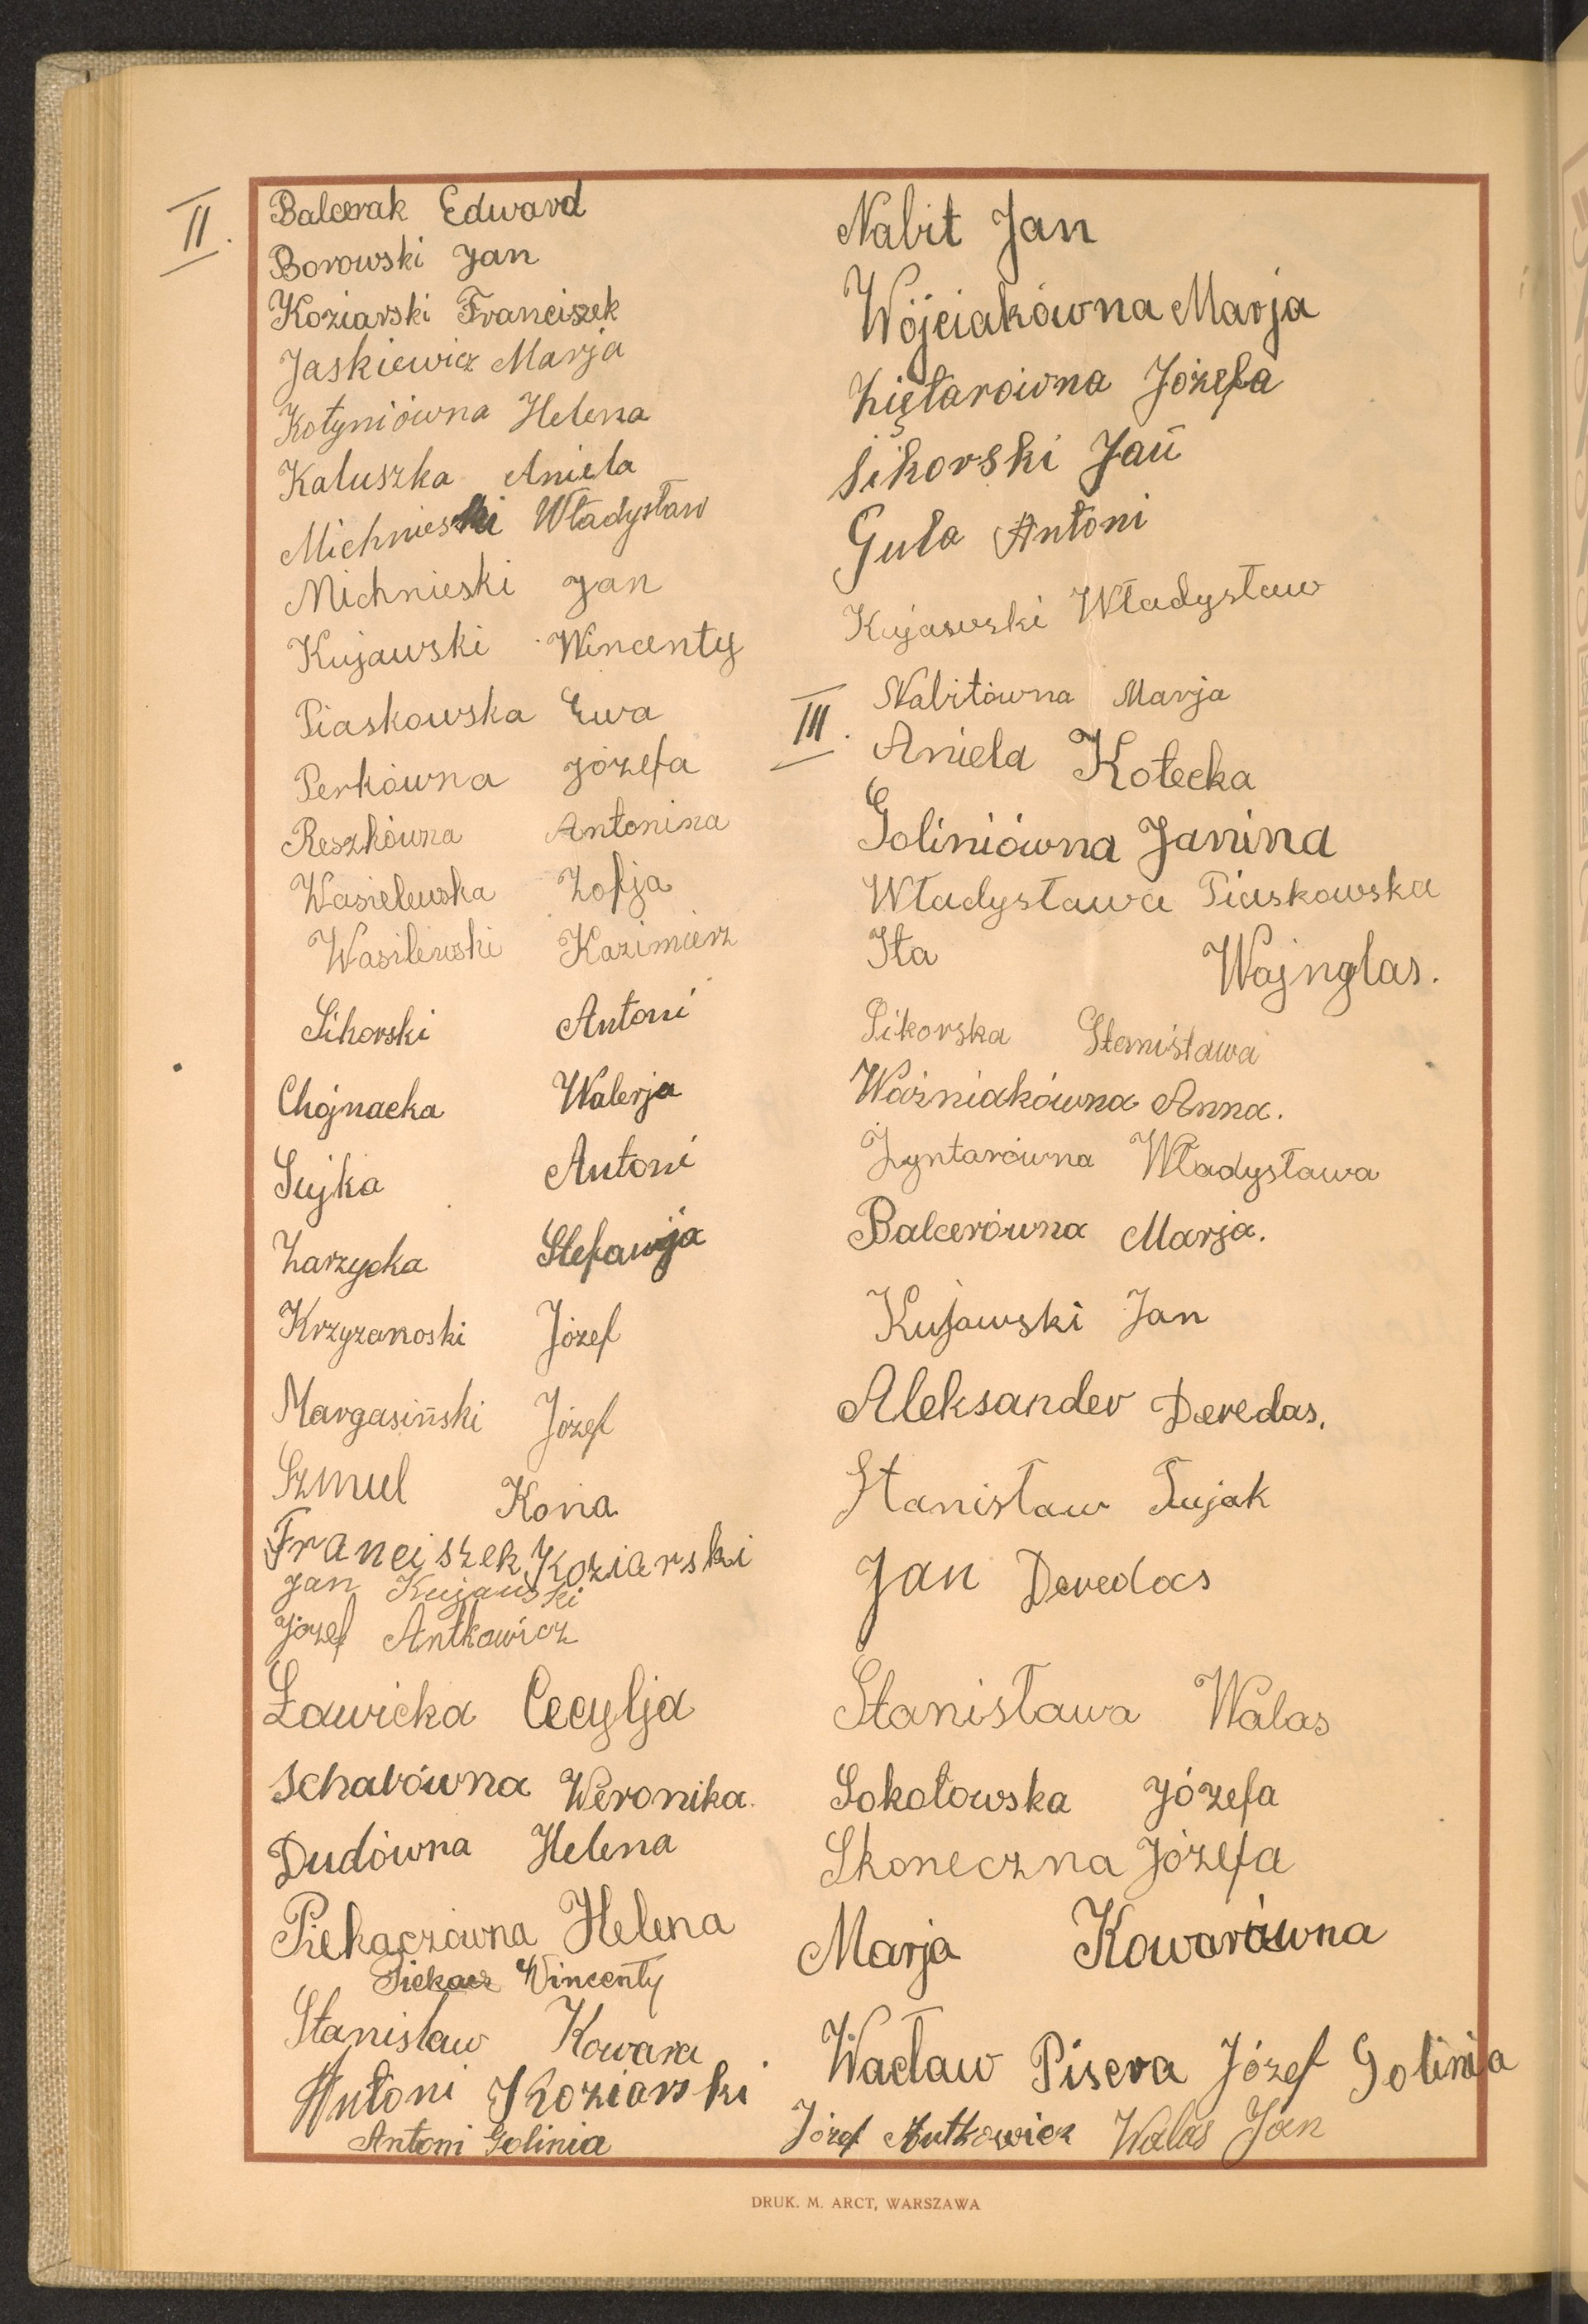 II.
Balcerak Edward
Borowski Jan
Koziarski Franciszek
Jaskiewicz Marja
Kotyniówna Helena
Kałuszka Aniela
Michnieski Władysław
Michnieski Jan
Kujawski Wincenty
Piaskowska Ewa
Perkówna Józefa
Reszkówna Antonina
Wasielewska Zofja
Wasilewski Kazimierz
Sikorski Antoni
Chojnacka Walerja
Sujka Antoni
Zarzycka Stefanja
Krzyzanoski Józef
Margasiński Józef
Szmul Kona
Franciszek Koziarski
Jan Kujawski
Józef Antkowicz
Ławicka Cecylja
Schabówna Weronika
Dudówna Helena
Piekaczówna Helena
Piekacz Wincenty
Stanisław Kowara
Antoni Koziarski
Antoni Golinia
Nabit Jan
Wójciakówna Marja
Ziętarówna Józefa
Sikorski Jan
Guła Antoni
Kujawski Władysław
Nabitówna Marja
III.
Aniela Kotecka
Goliniówna Janina
Władysława Piaskowska
Ita Wajnglas.
Sikorska Stanisława
Woźniakówna Anna.
Zyntarówna Władysława
Balcerówna Marja.
Kujawski Jan
Aleksander Deredas.
Stanisław Sujak
Jan Deredas
Stanisława Walas
Sokołowska Józefa
Skoneczna Józefa
Marja Kowarówna
Wacław Pisera Józef Golinia
Józef Antkowicz Walas Jan
DRUK. M. ARCT, WARSZAWA